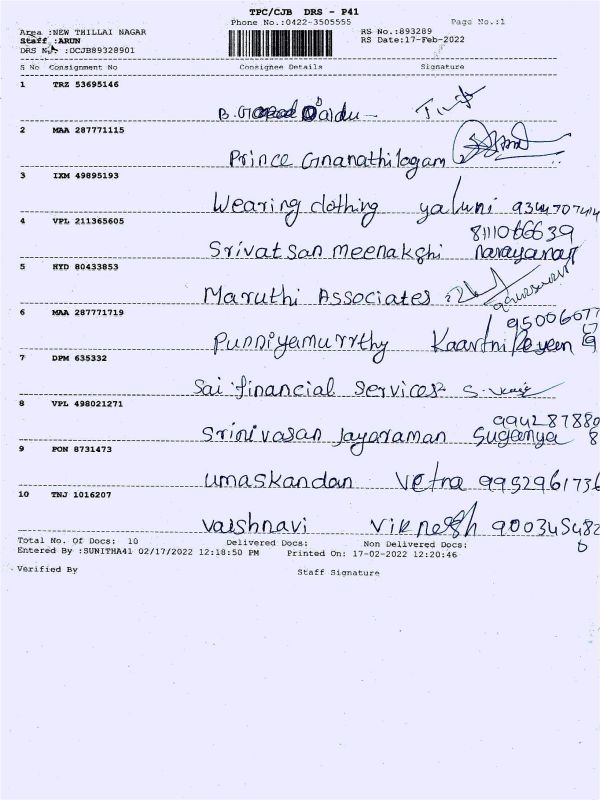 TPC/CJB DRS - P41
Phone No.:0422-3505555 Page No.:1
Area :NEW THILLAI NAGAR RS No.:893289
Staff :ARUN RS Date:17-Feb-2022
DRS No. :DCJB89328901
S No Consignment No Consignee Details Signature
1 TRZ 53695146
B.
2 MAA 287771115
Prince Gnanathilogam
3 IXM 49895193
Wearing clothing yaluni
4 VPL 211365605
8111066639
Srivatsan meenakshi narayanan
5 HYD 80433853
Maruthi Associates
6 MAA 287771719
Punniyamurrthy
7 DPM 635332
Sai financial services
8 VPL 498021271
Srinivasan Jayaraman Suganya
9 PON 8731473
umaskandan Vetra 9952961736
10 TNJ 1016207
vaishnavi Viknesh
Total No. Of Docs: 10 Delivered Docs: Non Delivered Docs:
Entered By :SUNITHA41 02/17/2022 12:18:50 PM Printed On: 17-02-2022 12:20:46
Verified By Staff Signature